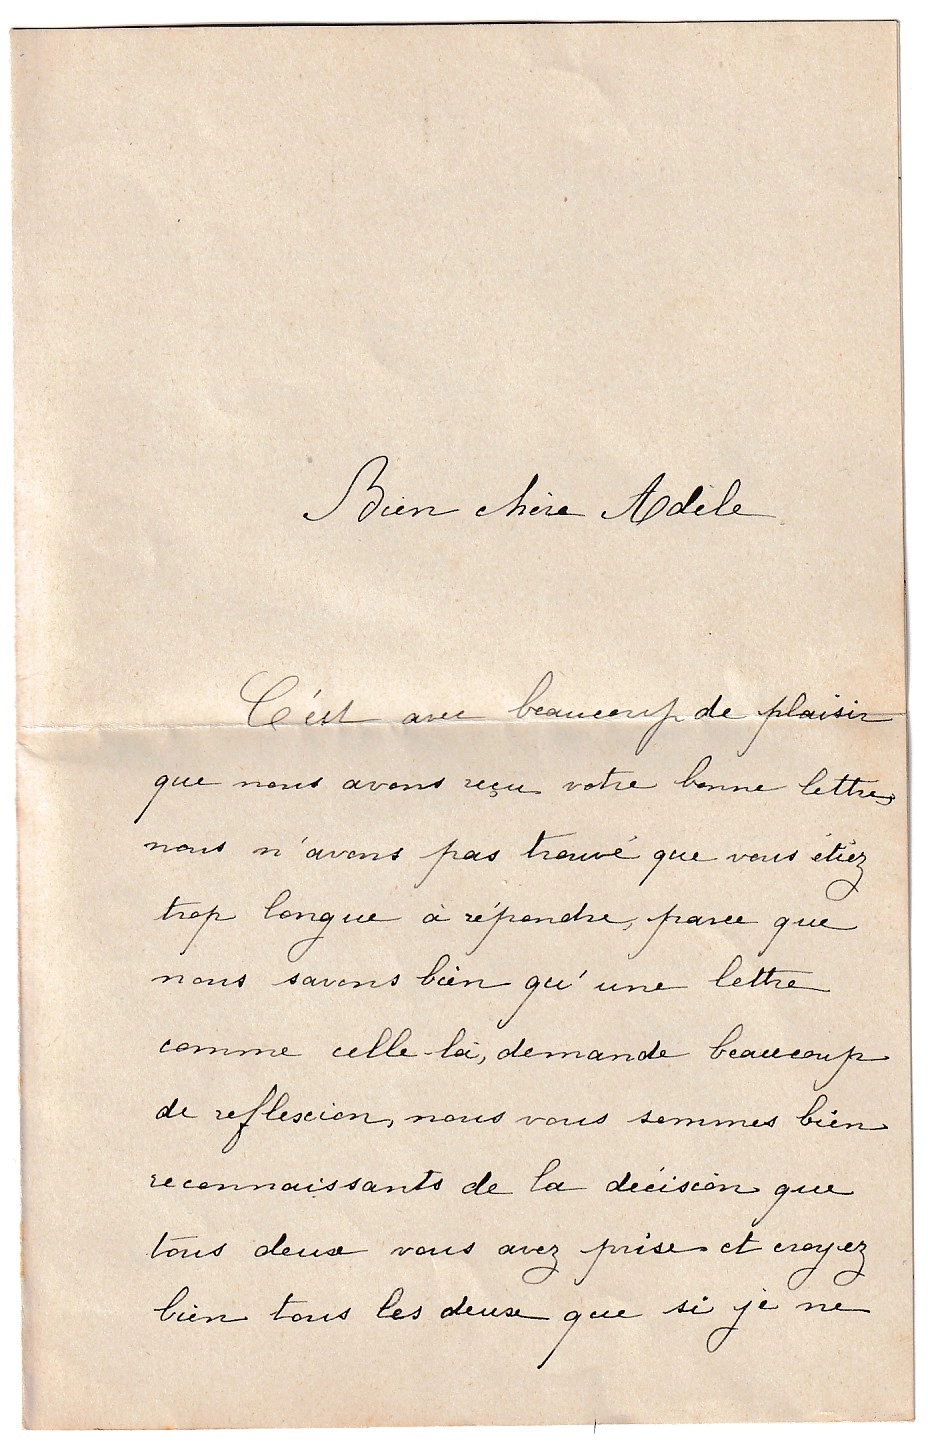 Bien chère Adèle
C'est avec beaucoup de plaisir
que nous avons reçu votre bonne lettre,
nous n'avons pas trouvé que vous étiez
trop longue à répondre, parce que
nous savons bien qu'une lettre
comme celle-là, demande beaucoup
de reflexion, nous vous sommes bien
reconnaissants de la décision que
tous deux vous avez prise et croyez
bien tous les deux que si je ne